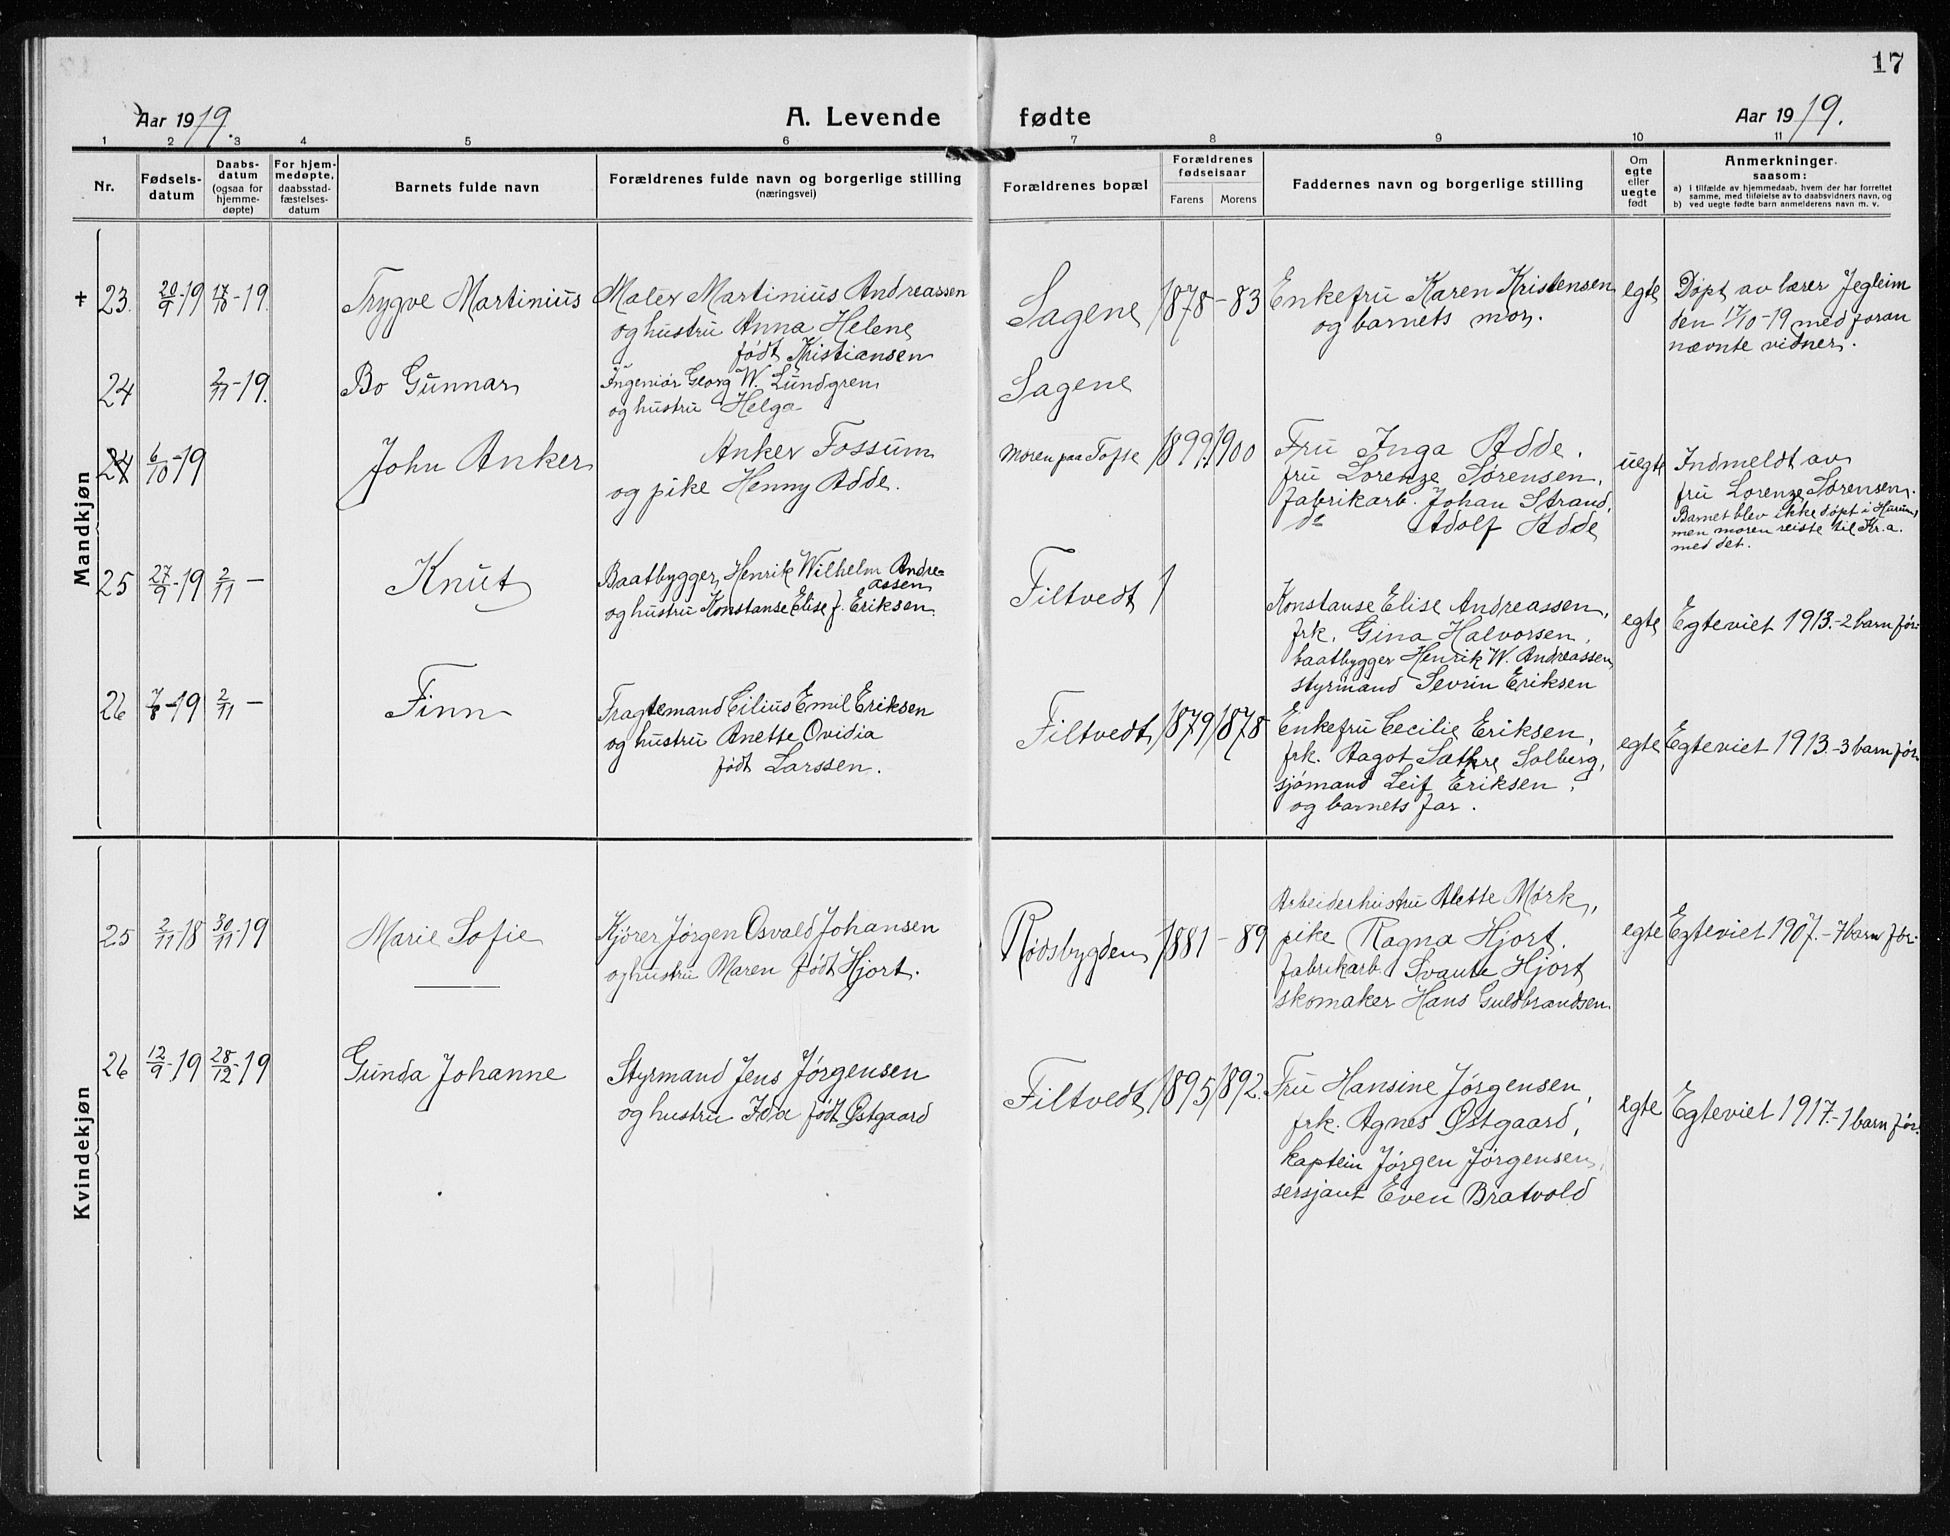 17
Aar 1919.
A. Levende fødte
Aar 1919.
1 2 3 4 5 6 7 8 9 10 11
Nr.
Fødsels-
datum
Daabs-
datum
(ogsaa for
hjemme-
døpte)
For hjem-
medøpte,
daabsstad-
fæstelses-
datum
Barnets fulde navn
Forældrenes fulde navn og borgerlige stilling
(næringsvei)
Forældrenes bopæl
Forældrenes
fødselsaar
Farens Morens
Faddernes navn og borgerlige stilling
Om
egte
eller
uegte
født
Anmerkninger.
saasom:
a) i tilfælde av hjemmedaab, hvem der har forrettet
samme, med tilføielse av to daabsvidners navn, og
b) ved uegte fødte barn anmelderens navn m. v.
Mandkjøn
+ 23. 20/9-19 17/10-19. Trygve Martinius
Maler Martinius Andreassen
og hustru Anna Helene
født Kristiansen
Sagene 1878-83
Enkefru Karen Kristensen
og barnets mor.
egte
Døpt av lærer Jegleim
den 17/10-19 med foran
nævnte vidner.
24 2/11-19. Bo Gunnar
Ingeniør Georg W. Lundgren
og hustru Helga
Sagene
24 6/10-19 John Anker
Anker Fossum
og pike Henny Adde.
Moren paa Tofte 1899. 1900
Fru Inga Adde.
fru Lorenze Sørensen,
fabrikarb. Johan Strand,
do Adolf Adde
uegte
Indmeldt av
fru Lorenze Sørensen.
Barnet blev ikke døpt i Hurum,
men moren reiste til Kr.a.
med det.
25 27/9-19 2/11 - Knut
Baatbygger Henrik Wilhelm Andre-
assen
og hustru Konstanse Elise f. Eriksen.
Filtvedt 1
Konstanse Elise Andreassen,
frk. Gina Halvorsen,
baatbygger Henrik W. Andreassen,
styrmand Sevrin Eriksen
egte
Egteviet 1913.-2 barn før.
26 7/8-19 2/11 - Finn
Fragtemand Cilius Emil Eriksen
og hustru Anette Ovidia
født Larssen.
Filtvedt 1879 1878
Enkefru Cecilie Eriksen,
frk. Aagot Sæthre Solberg,
sjømand Leif Eriksen,
og barnets far.
egte
Egteviet 1913.-3 barn før
Kvindekjøn
25 2/11-18 30/11-19 Marie Sofie
Kjører Jørgen Osvald Johansen
og hustru Maren født Hjort.
Rødsbygden 1881-89
Arbeiderhustru Alette Mørk,
pike Ragna Hjort.
fabrikarb. Svante Hjort
skomaker Hans Guldbrandsen.
egte
Egteviet 1907.-7 barn før.
26 12/9-19 28/12-19 Gunda Johanne
Styrmand Jens Jørgensen
og hustru Ida født Østgaard
Filtvedt 1895 1892.
Fru Hansine Jørgensen,
frk. Agnes Østgaard,
kaptein Jørgen Jørgensen,
sersjant Even Bratvold
egte
Egteviet 1917.-1 barn før.